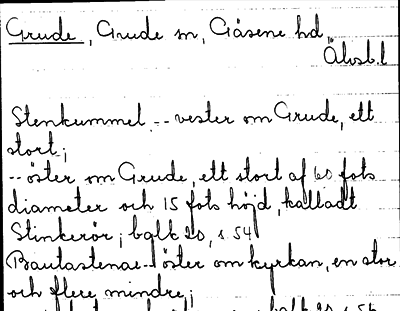 Grude, Grude sn, Gåsene hd,
Älvsb.l
Stenkummel -- vester om Grude, ett
stort;
-- öster om Grude, ett stort af 60 fots
diameter och 15 fots höjd, kalladt
Stinkerör; balk 20, s 54
Bautastenar -- öster om kyrkan, en stor
och flere mindre;
balk 20 s 56